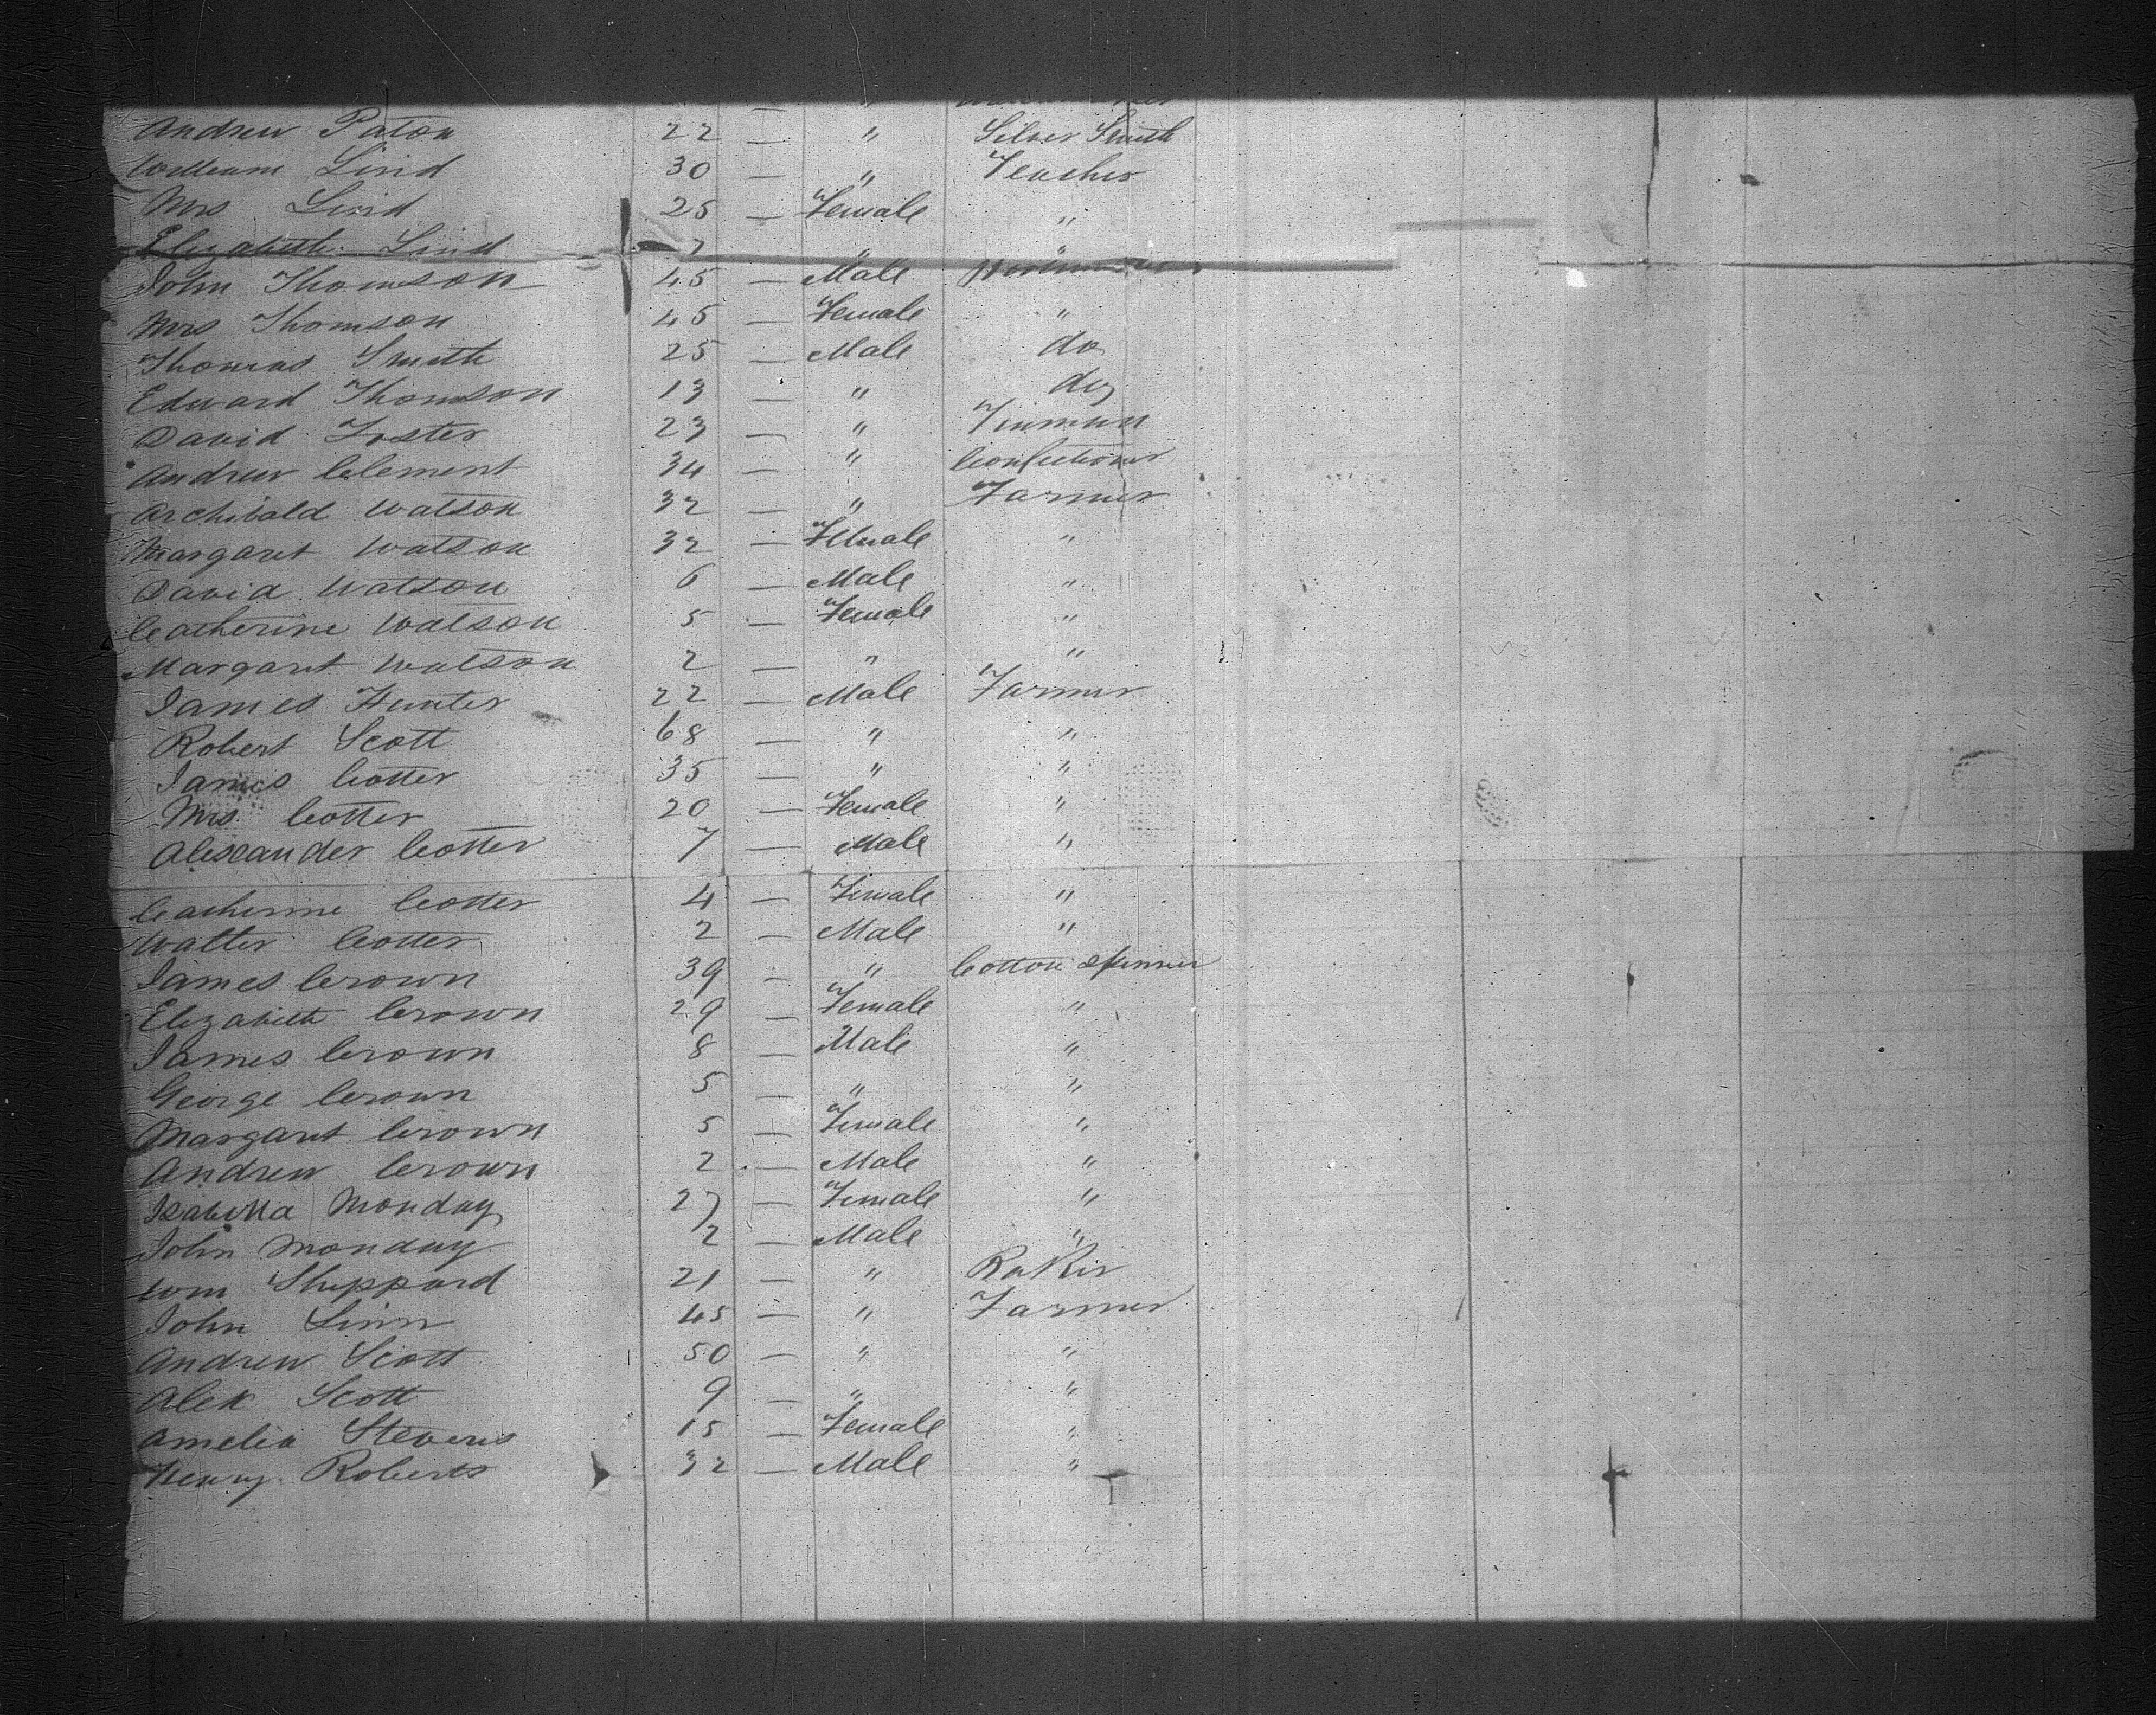 Andrew Paton 22 — " Silver Smith
William Lind 30 — " Teacher
Mrs Lind 25 — Female "
Elizabeth Lind 7 " "
John Thomson 45 — Male
Mrs Thomson 45 — Female "
Thomas Smith 25 — Male do
Edward Thomson 13 — " do
David Foster 23 — " Tinman
Andrew Clement 34 — " Confectioner
Archibald Watson 32 — " Farmer
Margaret Watson 32 — Female "
David Watson 6 — Male "
Catherine Watson 5 — Female "
Margaret Watson 2 — " "
James Hunter 22 — Male Farmer
Robert Scott 68 — " "
James Cotter 35 — " "
Mrs Cotter 20 — Female "
Alexander Cotter 7 — Male "
Catherine Cotter 4 — Female "
Walter Cotter 2 — Male "
James Crown 39 — " Cotton Spinner
Elizabeth Crown 29 — Female "
James Crown 8 — Male "
George Crown 5 — " "
Margaret Crown 5 — Female "
Andrew Crown 2 — Male "
Isabella Monday 27 — Female "
John Monday 2 — Male "
Wm Sheppard 21 — "
John Linn 45 — " Farmer
Andrew Scott 50 — " "
Alex Scott 9 — " "
Amelia Stevens 15 — Female "
Henry Roberts 32 — Male "